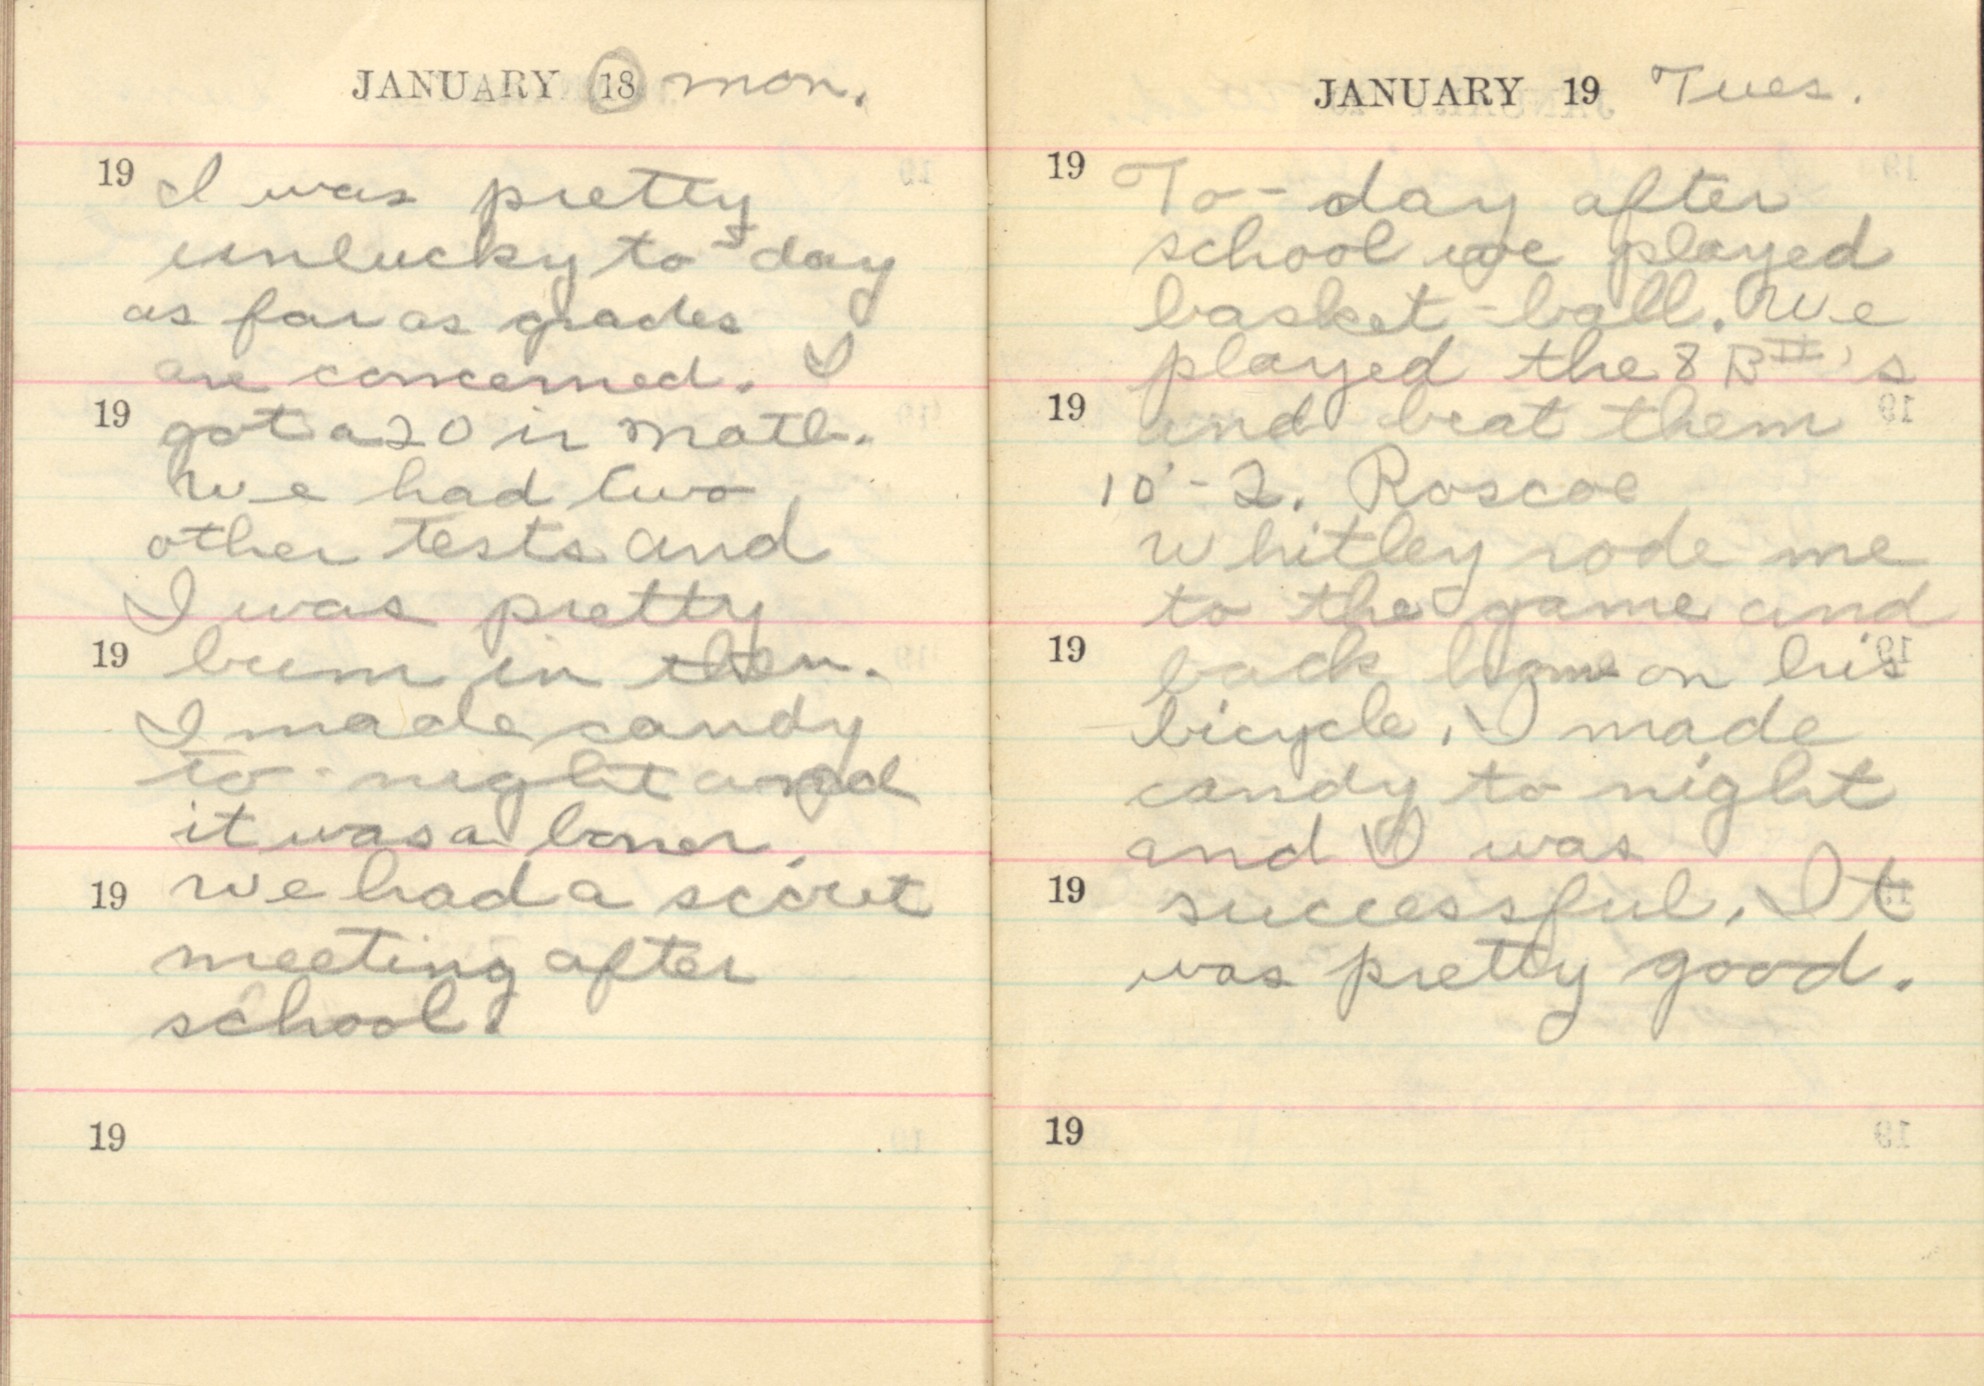 JANUARY 18 mon.
19 I was pretty
unlucky to-day
as far as grades
are concerned. I
19 got a 20 in math.
We had two
other tests and
I was pretty
19 bum in them.
I made candy
to-night and
it was a boner.
19 We had a secret
meeting after
school.
19
JANUARY 19 Tues.
19 To-day after
school we played
basket-ball. We
played the 8 B II's
19 and beat them
10-2. Roscoe
Whitley rode me
to the game and
19 back home on his
bicycle. I made
candy to night
and I was
19 successful. It
was pretty good.
19